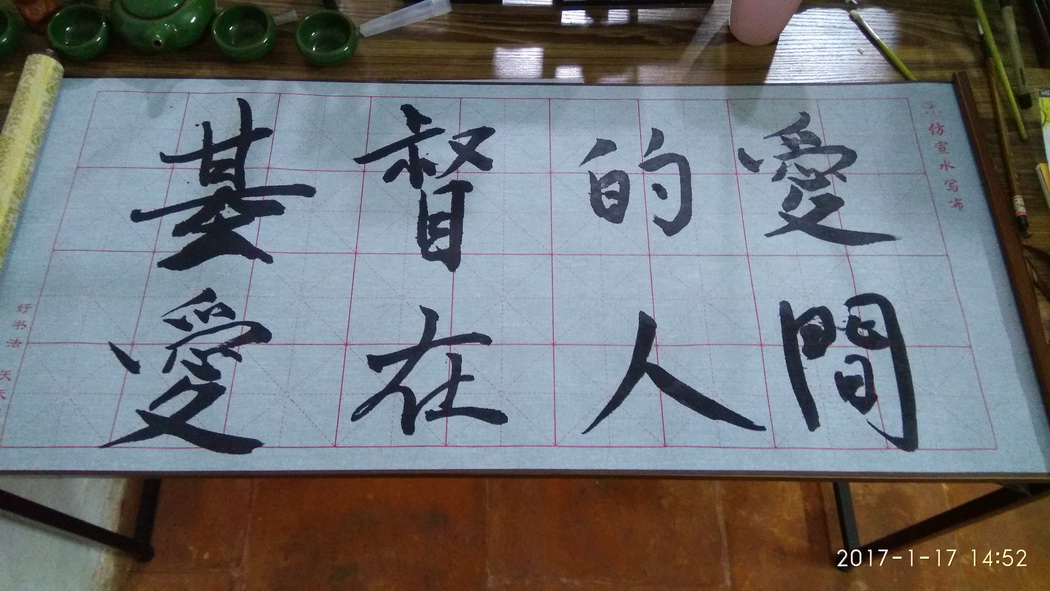 基督的愛
愛在人間
仿宣水写布
好书法 天天
2017-1-17 14:52